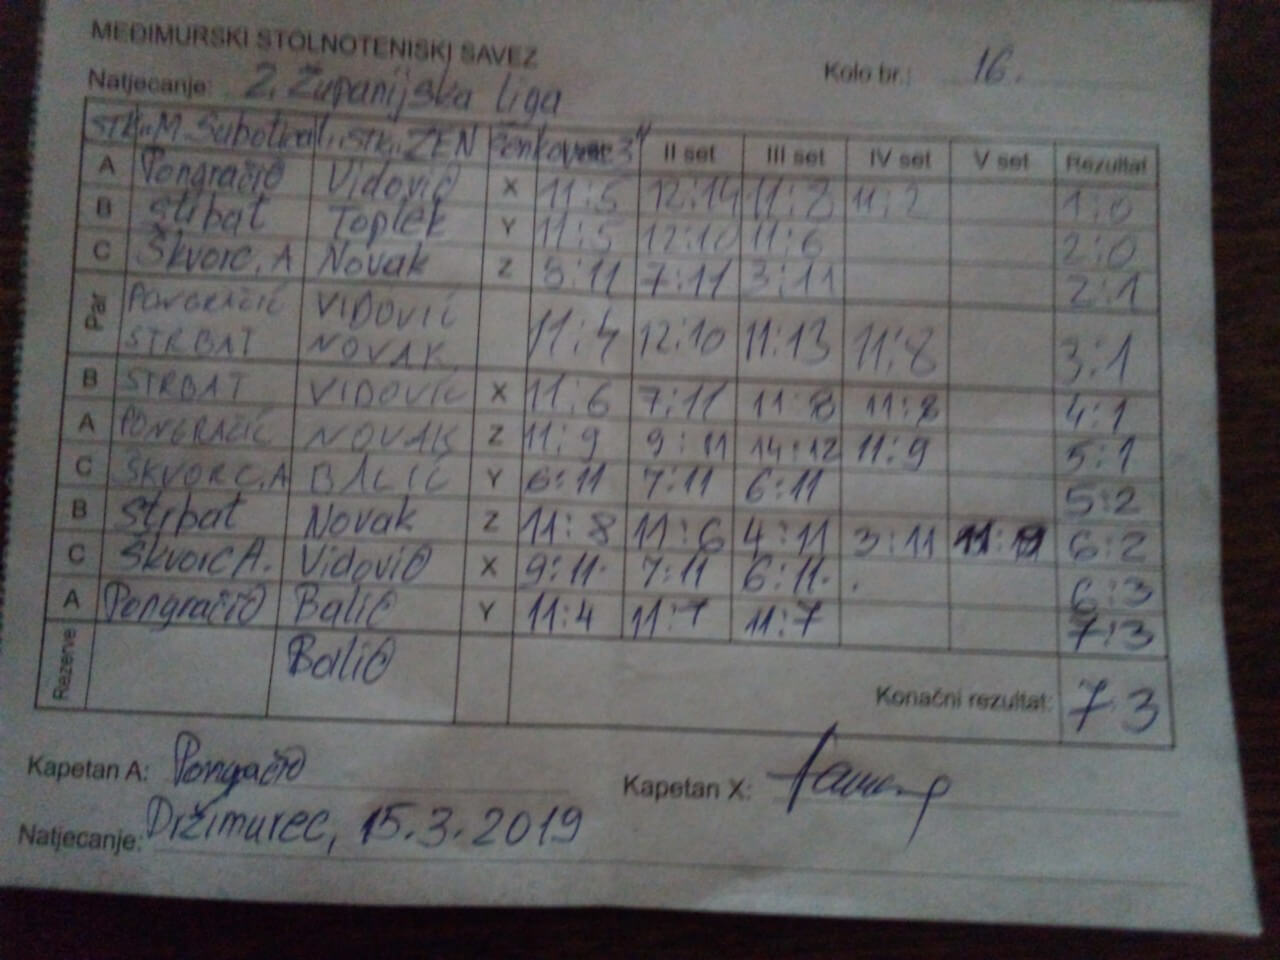 MEĐIMURSKI STOLNOTENISKI SAVEZ
Kolo br.: 16.
Natjecanje: 2. Županijska liga
STK "M. Subotica" STK "ZEN Čenkovec 3" II set III set IV set V set Rezultat
A Pongračić Vidović X 11:5 12:14 11:8 11:2 1:0
B Štrbat Toplek Y 11:5 12:10 11:6 2:0
C Škvorc. A Novak Z 8:11 7:11 3:11 2:1
Par PONGRAČIĆ VIDOVIĆ
STRBAT NOVAK 11:4 12:10 11:13 11:8 3:1
B STRBAT VIDOVIĆ X 11:6 7:11 11:8 11:8 4:1
A PONGRAČIĆ NOVAK Z 11:9 9:11 14:12 11:9 5:1
C ŠKVORC.A BALIĆ Y 6:11 7:11 6:11 5:2
B Štrbat Novak Z 11:8 11:6 4:11 3:11 11:9 6:2
C Škvorc A. Vidović X 9:11 7:11 6:11 6:3
A Pongračić Balić Y 11:4 11:7 11:7 7:3
Rezerve Balić
Konačni rezultat: 7:3
Kapetan A: Pongračić
Kapetan X:
Natjecanje: Držimurec, 15.3.2019